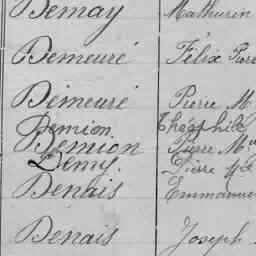 Demay Mathurin
Demeuré Félix Pierre
Démeuré Pierre M
Demion Théophile
Demion Pierre Mie
Demy. Pierre
Denais Emmanuel
Denais Joseph